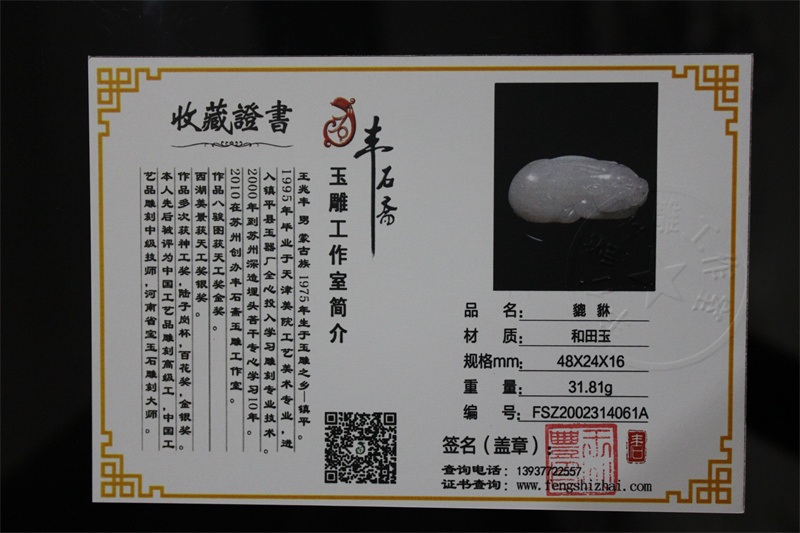 收藏證書
丰石斋
玉雕工作室简介
王兆丰 男 蒙古族 1975年生于玉雕之乡—镇平。
1995年毕业于天津美院工艺美术专业，进
入镇平县玉器厂全心投入学习雕刻专业技术。
2000年到苏州深造埋头苦干专心学习10年。
2010年在苏州创办丰石斋玉雕工作室。
作品八骏图获天工奖金奖。
西湖美景获天工奖银奖。
作品多次获神工奖，陆子岗杯，百花奖，金银奖。
本人先后被评为中国工艺品雕刻高级工，中国工
艺品雕刻中级技师，河南省宝玉石雕刻大师。
品 名： 貔貅
材 质： 和田玉
规格mm： 48X24X16
重 量： 31.81g
编 号： FSZ2002314061A
签名（盖章）：
查询电话：13937722557
证书查询：www.fengshizhai.com